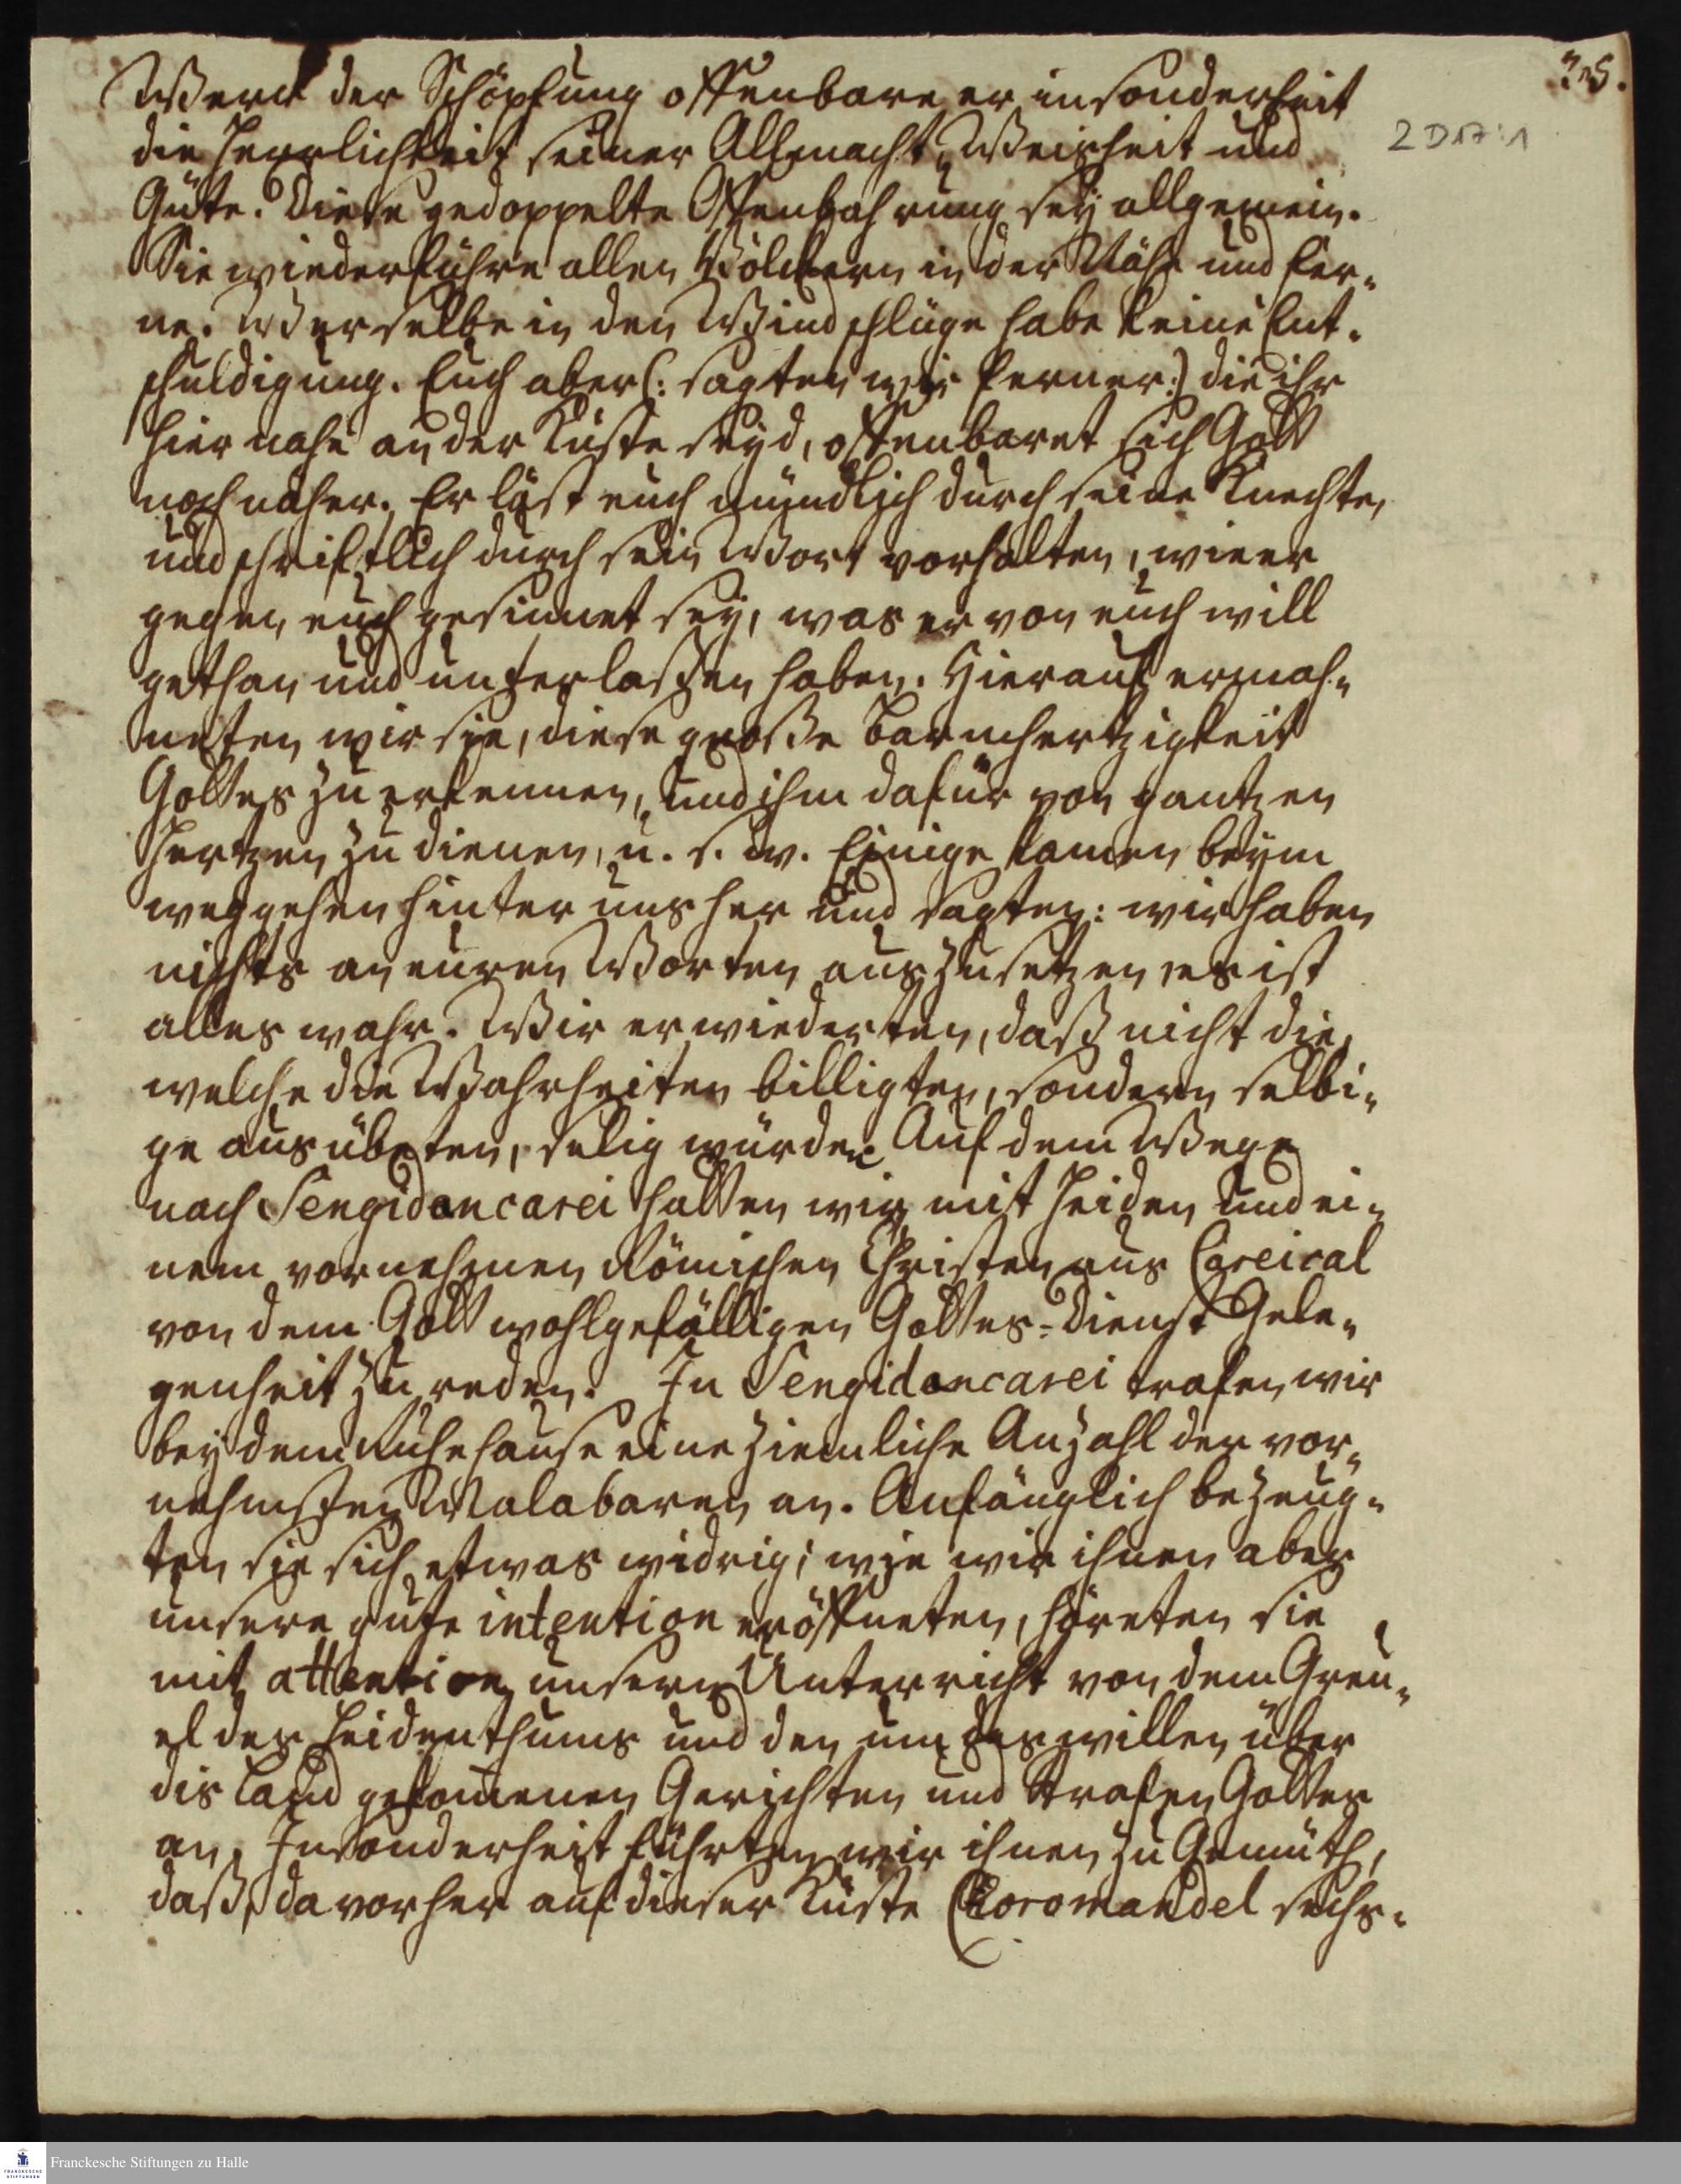 Werck der Schöpfung offenbare er insonderheit
die Herrlichkeit seiner Allmacht, Weisheit und
Güte. Diese gedoppelte Offenbahrung sey allgemein.
Sie wiederführe allen Völckern in der Nähe und Fer-
ne. Wer selbe in den Wind schlüge habe keine Ent-
schuldigung. Euch aber (: sagten wir ferner:) die ihr
hier nahe an der Küste seyd, offenbaret sich Gott
noch näher. Er läst euch mündlich durch seine Knechte,
und schriftlich durch sein Wort vorhalten, wie er
gegen euch gesinnet sey, was er von euch will
gethan und unterlassen haben. Hierauf ermah-
neten wir sie, diese große Barmhertzigkeit
Gottes zu erkennen, und ihm dafür von gantzen
Hertzen zu dienen, u. s. w. Einige kamen beym
weggehen hinter uns her und sagten: wir haben
nichts an euren Worten auszusetzen, es ist
alles wahr. Wir erwiederten, daß nicht die,
welche die Wahrheiten billigten, sondern selbi-
ge ausübeten, selig würden. Auf dem Wege
nach Sengidancarei hatten wir mit Heiden und ei-
nem vornehmen Römischen Christen aus Careical
von dem Gott wohlgefälligen Gottes-Dienst Gele-
genheit zu reden. In Sengidancarei trafen wir
bey dem Ruhehause eine ziemliche Anzahl der vor-
nehmsten Malabaren an. Anfänglich bezeug-
ten sie sich etwas widrig; wie wir ihnen aber
unsere gute intention eröffneten, höreten sie
mit attention unsern Unterricht von dem Greu-
el des Heidenthums und den um deswillen über
dis Land gekommenen Gerichten und Strafen Gottes
an. Insonderheit führten wir ihnen zu Gemüth,
daß, da vorher auf dieser Küste Choromandel sechs-
2 D 17:1
Franckesche Stiftungen zu Halle
FRANCKESCHE
STIFTUNGEN